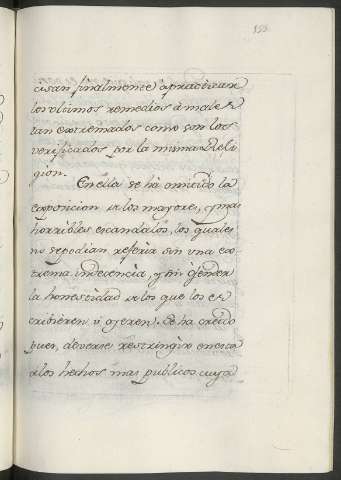 155
cisan finalmente apracticar
los ultimos remedios à males
tan extremados como son los
verificados por la misma Reli
gion.
En ella se ha omitido la
exposicion de los mayores, y mas
horribles escandalos, los quales
no se podian referir sin una ex
trema indecencia, y sin ofender
la honestidad de los que los es
cribieren ù oyeren. Se ha creido
pues, deverse restringir en esta
a los hechos mas publicos cuya